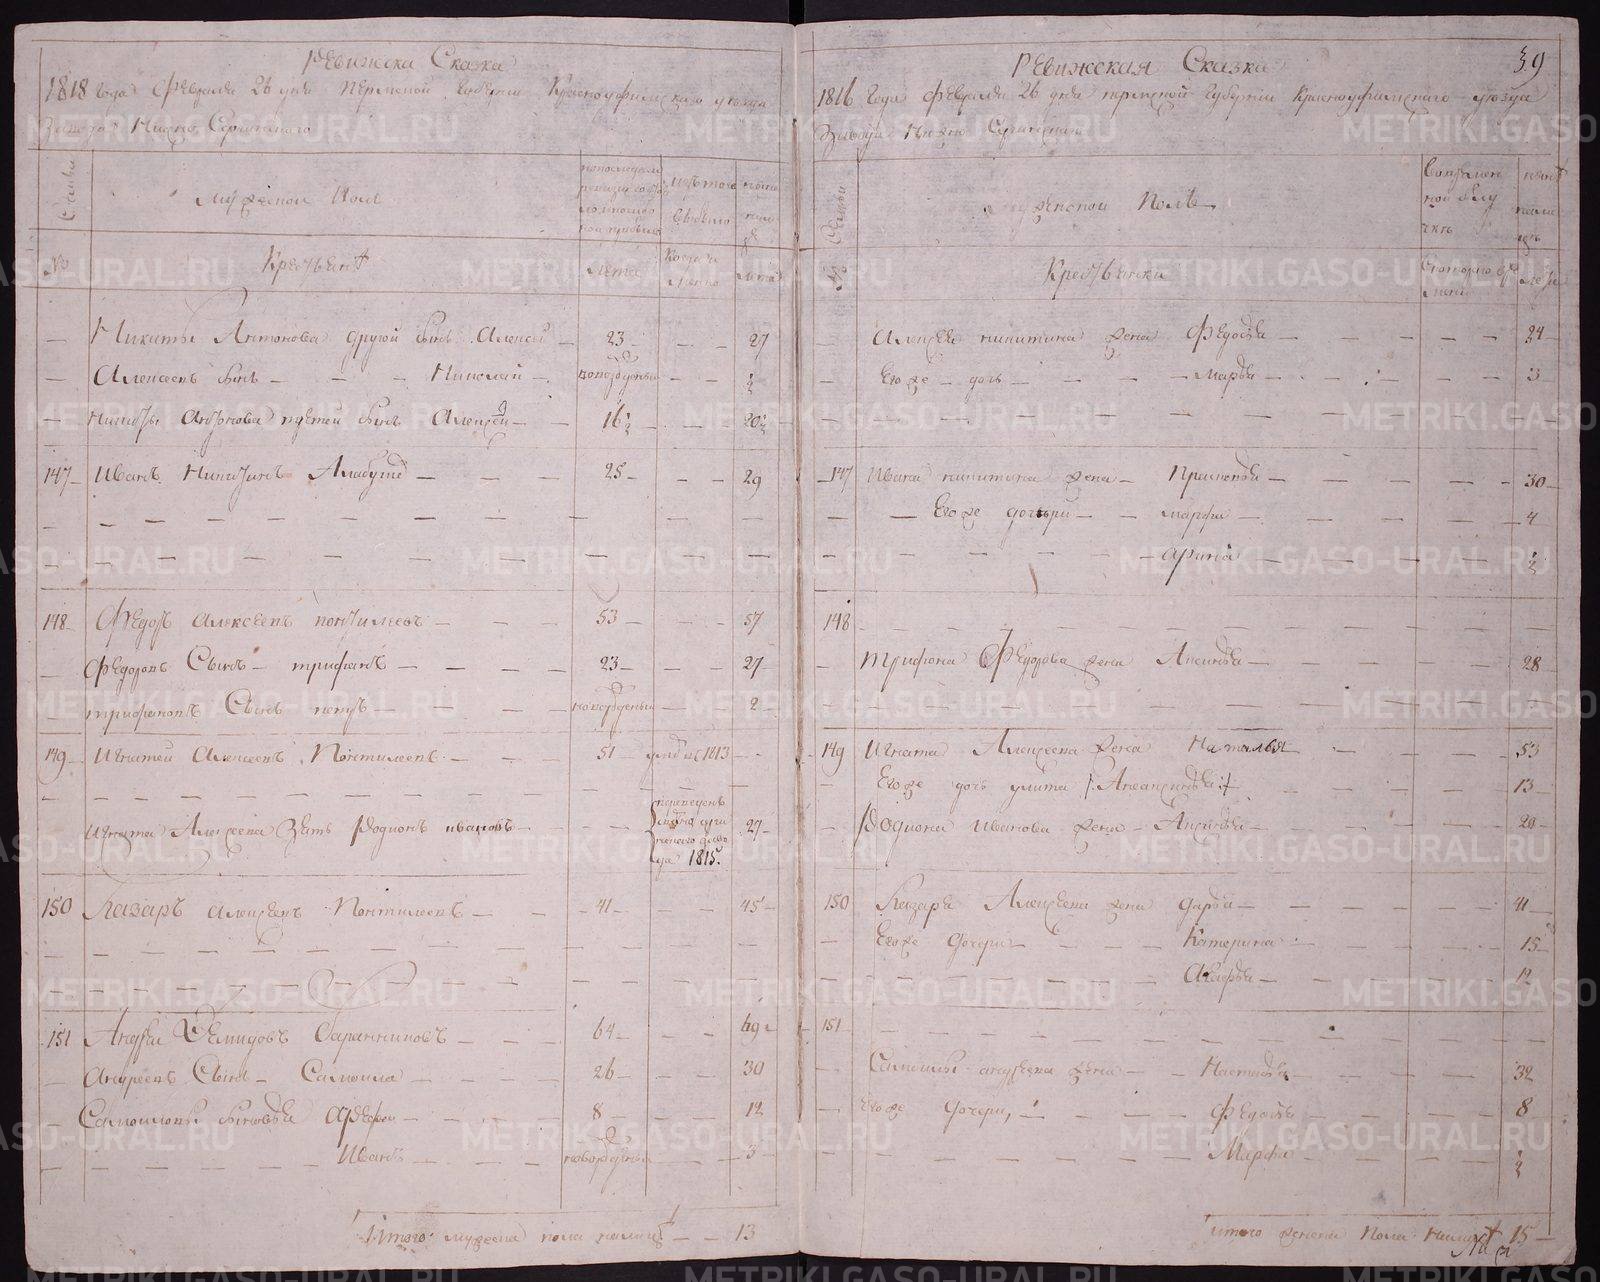 Ревижска Сказка
1818 года Февраля 26 дня Пермской Губернии Красноуфимскаго уезда
Завода Нижно Сергинскаго
Семьи
Мужеской Полъ
по последней ревизии состояло
изъ того выбыло
ныне на лицо
№
Крестьяне
Лета
Когда именно
Лета
Никиты Антонова другой сынъ Алексей 23 27
Алексеевъ сынъ Николай новорожденый ½
Никиты Антонова третей сынъ Алексей 16½ 20½
147 Иванъ Никитинъ Алабушев 25 29
148 Федоръ Алексеевъ Понтилеевъ 53 57
Федоровъ Сынъ трифанъ 23 27
трифановъ Сынъ петръ новорожденый 2
149 Игнатей Алексеевъ Понтилеевъ 51 умре 1813
Игната Алексеева Зять Родионъ ивановъ переведенъ 1815. 27
150 Назаръ Алексеевъ Понтилеевъ 41 45
151 Андрей Демидовъ Саранниковъ 64 69
Андреевъ Сынъ Самойла 26 30
Самойловы сыновья Арефей 8 12
Иванъ новорожденый 3
Итого мужеска пола налицо 13
Ревижская Сказка
39
1816 года Февраля 26 дня пермской Губернии Красноуфимскаго уезда
Завода Нижно Сергинскаго
Семьи
Женской Полъ
Во временной отлучке
ныне на лицо
№
Крестьянки
С котораго времени
Лета
Алексея никитина жена Федосья 24
Его же дочь Марья 3
147 Ивана никитина жена Прасковья 30
Его же дочери марфа 4
арина ½
148
трифона Федорова жена Аксинья 28
149 Игната Алексеева жена Наталья 53
Его же дочь улита 13
Родиона иванова жена Аксинья 29
150 Назара Алексеева жена дарья 41
Его же дочери Катерина 15
12
151
Самойлы андреева жена Настасья 32
Его же дочери, Федосья 8
Марфа ½
итого женска Пола налицо 15